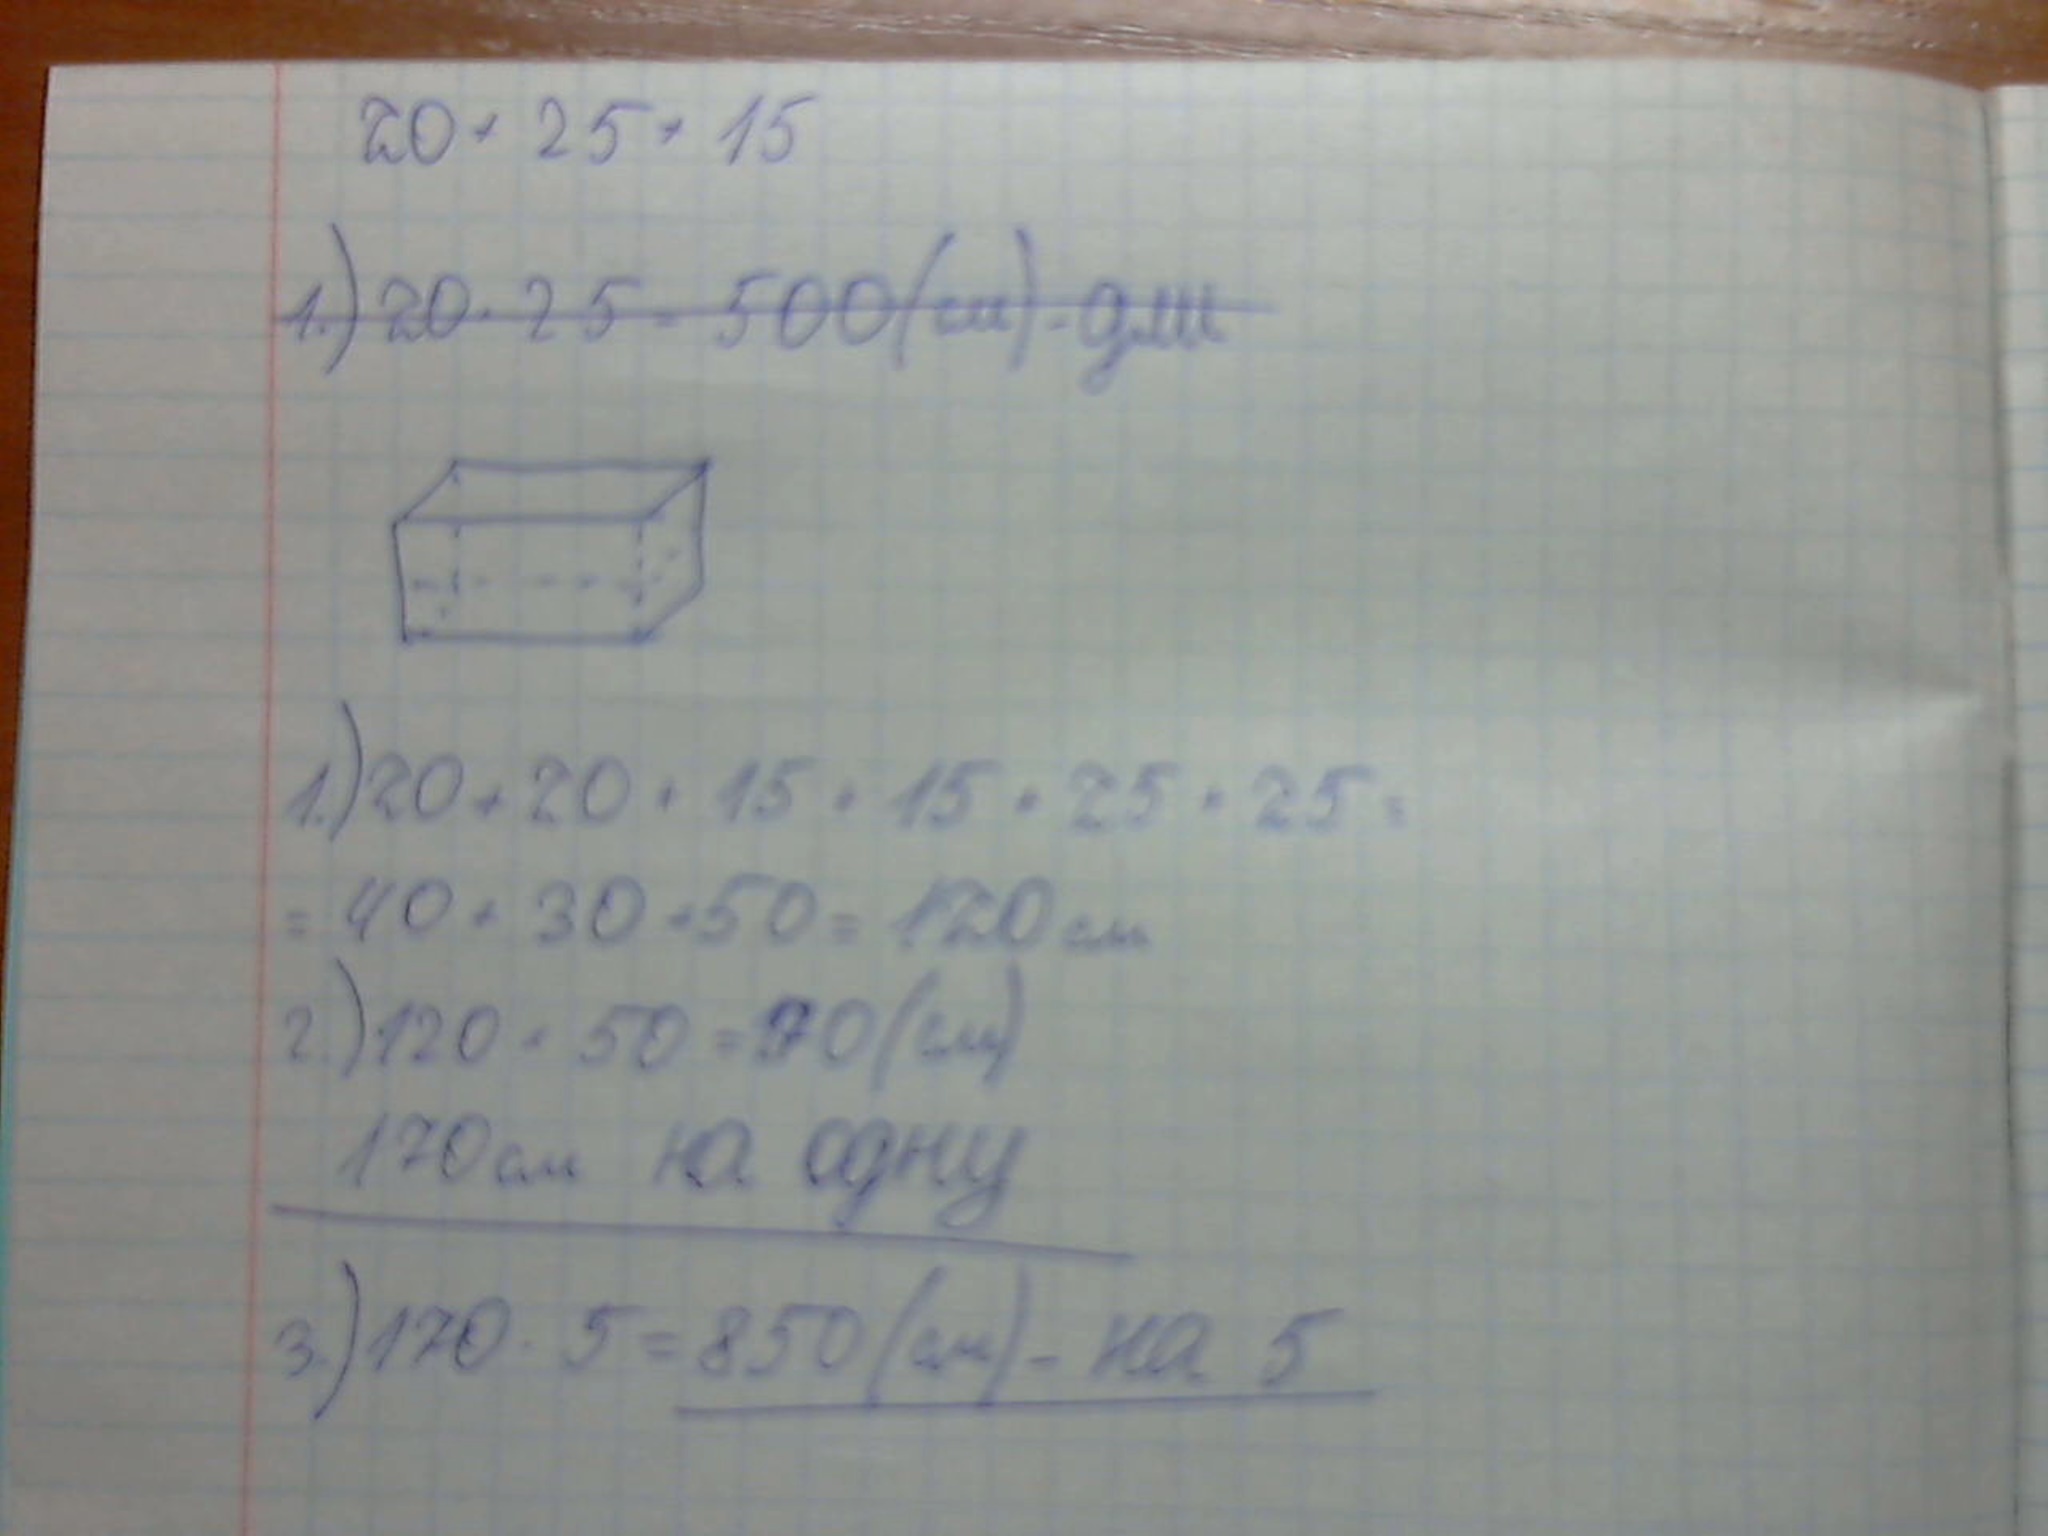 20 + 25 + 15
1.) 20 · 25 = 500 (см) - дли
1.) 20 + 20 + 15 + 15 + 25 + 25 =
= 40 + 30 + 50 = 120 см
2.) 120 - 50 = 70 (см)
170 см на одну
3.) 170 · 5 = 850 (см) - на 5